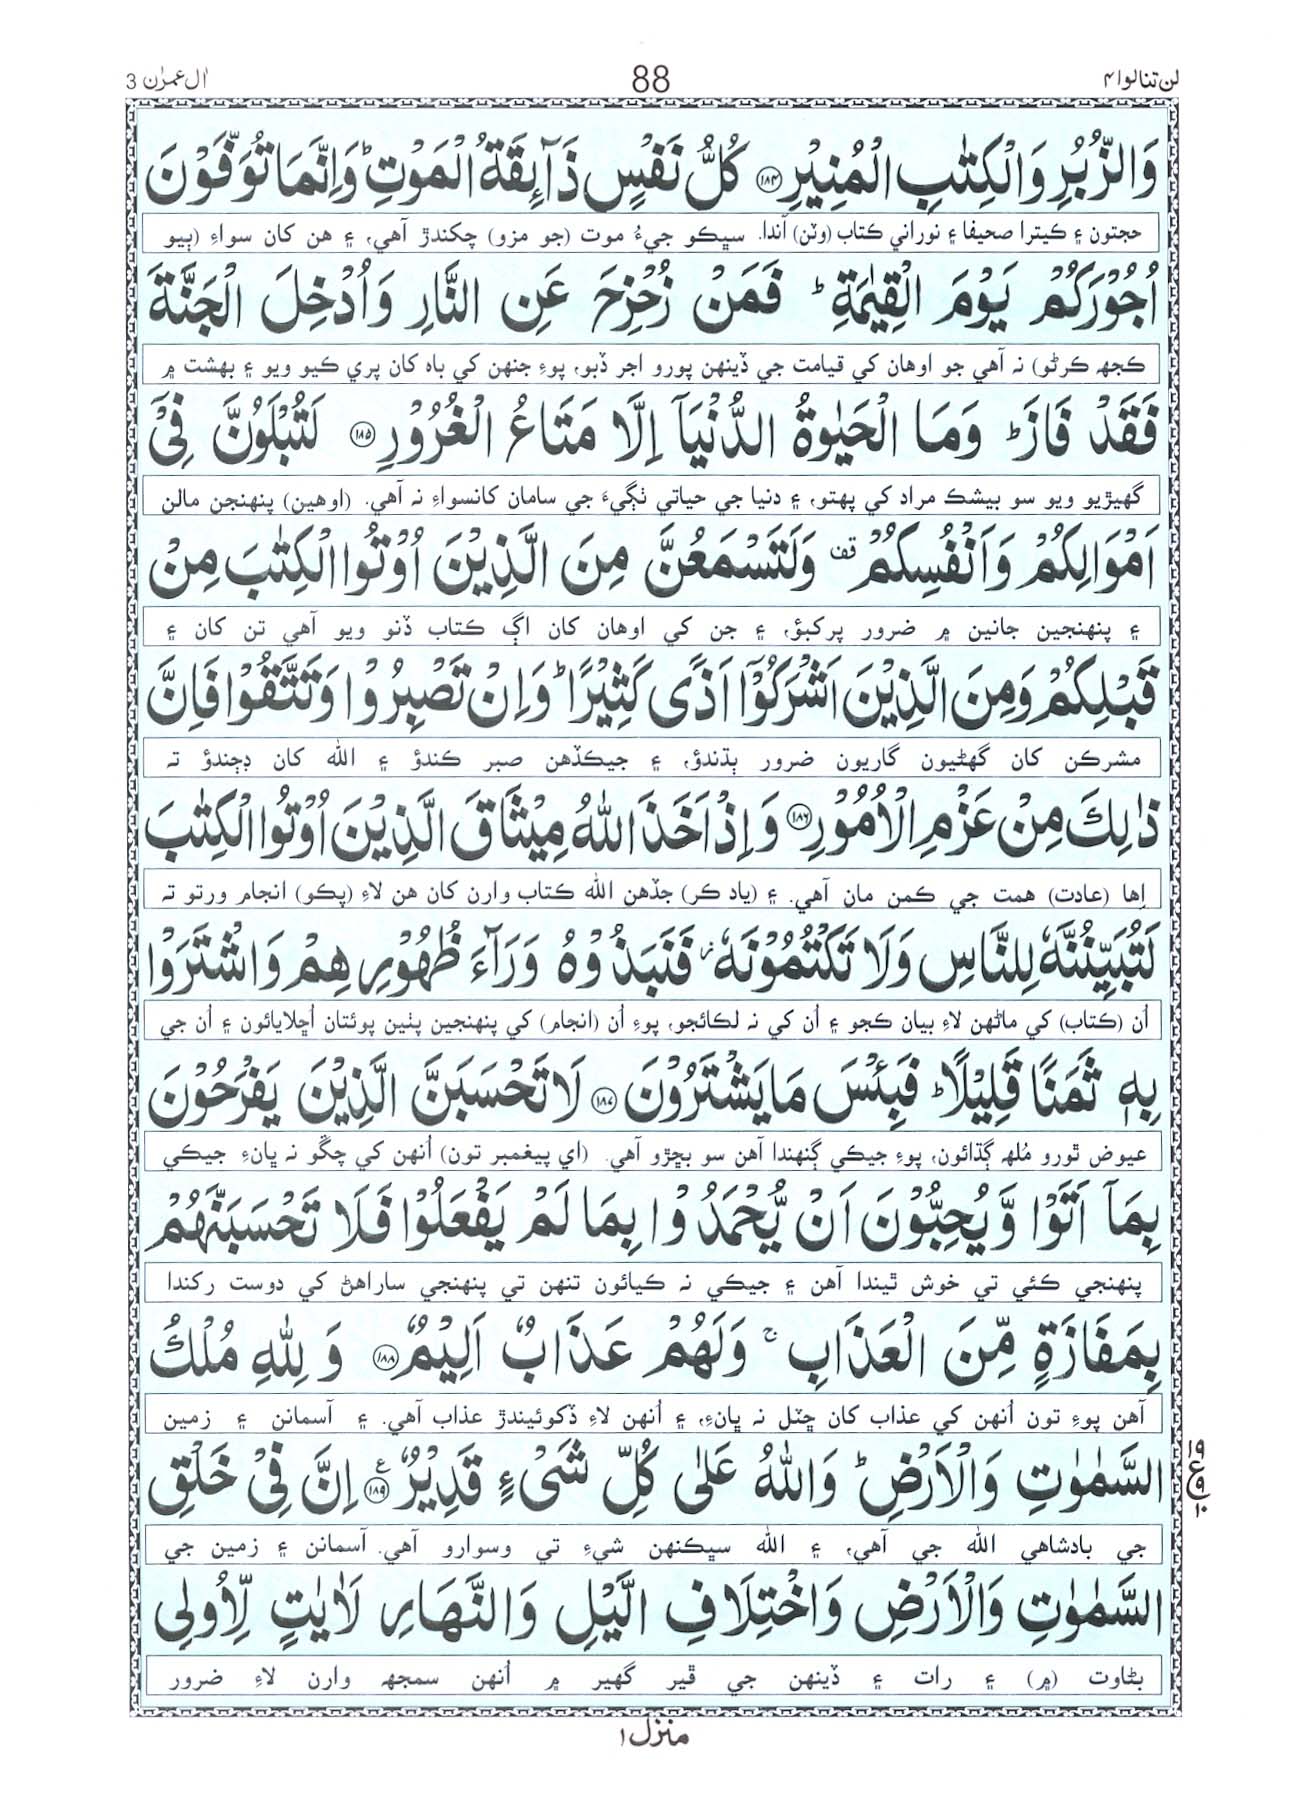 لن تنالوا ۴
88
اٰل عمرٰن 3
وَالزُّبُرِ وَالْكِتٰبِ الْمُنِيْرِ ﴿۱۸۴﴾ كُلُّ نَفْسٍ ذَآئِقَةُ الْمَوْتِ ؕ وَاِنَّمَا تُوَفَّوْنَ
حجتون ۽ ڪيترا صحيفا ۽ نوراني ڪتاب (وٽن) آندا. سڀڪو جيءُ موت (جو مزو) چکندڙ آهي، ۽ هن کان سواءِ (ٻيو
اُجُوْرَكُمْ يَوْمَ الْقِيٰمَةِ ؕ فَمَنْ زُحْزِحَ عَنِ النَّارِ وَاُدْخِلَ الْجَنَّةَ
ڪجھ ڪرڻو) نہ آهي جو اوهان کي قيامت جي ڏينهن پورو اجر ڏبو، پوءِ جنهن کي باه کان پري ڪيو ويو ۽ بهشت ۾
فَقَدْ فَازَ ؕ وَمَا الْحَيٰوةُ الدُّنْيَاۤ اِلَّا مَتَاعُ الْغُرُوْرِ ﴿۱۸۵﴾ لَتُبْلَوُنَّ فِيْۤ
گهيڙيو ويو سو بيشڪ مراد کي پهتو، ۽ دنيا جي حياتي ٺڳيءَ جي سامان کانسواءِ نہ آهي. (اوهين) پنهنجن مالن
اَمْوَالِكُمْ وَاَنْفُسِكُمْ ۫ وَلَتَسْمَعُنَّ مِنَ الَّذِيْنَ اُوْتُوا الْكِتٰبَ مِنْ
۽ پنهنجين جانين ۾ ضرور پرکبؤ، ۽ جن کي اوهان کان اڳ ڪتاب ڏنو ويو آهي تن کان ۽
قَبْلِكُمْ وَمِنَ الَّذِيْنَ اَشْرَكُوْۤا اَذًى كَثِيْرًا ؕ وَاِنْ تَصْبِرُوْا وَتَتَّقُوْا فَاِنَّ
مشرڪن کان گهڻيون گاريون ضرور ٻڌندؤ، ۽ جيڪڏهن صبر ڪندؤ ۽ الله کان ڊڄندؤ تہ
ذٰلِكَ مِنْ عَزْمِ الْاُمُوْرِ ﴿۱۸۶﴾ وَاِذْ اَخَذَ اللّٰهُ مِيْثَاقَ الَّذِيْنَ اُوْتُوا الْكِتٰبَ
اِها (عادت) همت جي ڪمن مان آهي. ۽ (ياد ڪر) جڏهن الله ڪتاب وارن کان هن لاءِ (پڪو) انجام ورتو تہ
لَتُبَيِّنُنَّهٗ لِلنَّاسِ وَلَا تَكْتُمُوْنَهٗ ؗ فَنَبَذُوْهُ وَرَآءَ ظُهُوْرِهِمْ وَاشْتَرَوْا
اُن (ڪتاب) کي ماڻهن لاءِ بيان ڪجو ۽ اُن کي نہ لڪائجو، پوءِ اُن (انجام) کي پنهنجين پٺين پوئتان اُڇلايائون ۽ اُن جي
بِهٖ ثَمَنًا قَلِيْلًا ؕ فَبِئْسَ مَا يَشْتَرُوْنَ ﴿۱۸۷﴾ لَا تَحْسَبَنَّ الَّذِيْنَ يَفْرَحُوْنَ
عيوض ٿورو مُلھ ڳڌائون، پوءِ جيڪي ڳنهندا آهن سو بڇڙو آهي. (اي پيغمبر تون) اُنهن کي چڱو نہ ڀانءِ جيڪي
بِمَاۤ اَتَوْا وَّيُحِبُّوْنَ اَنْ يُّحْمَدُوْا بِمَا لَمْ يَفْعَلُوْا فَلَا تَحْسَبَنَّهُمْ
پنهنجي ڪئي تي خوش ٿيندا آهن ۽ جيڪي نہ ڪيائون تنهن تي پنهنجي ساراهڻ کي دوست رکندا
بِمَفَازَةٍ مِّنَ الْعَذَابِ ۚ وَلَهُمْ عَذَابٌ اَلِيْمٌ ﴿۱۸۸﴾ وَلِلّٰهِ مُلْكُ
آهن پوءِ تون اُنهن کي عذاب کان ڇٽل نہ ڀانءِ، ۽ اُنهن لاءِ ڏکوئيندڙ عذاب آهي. ۽ آسمانن ۽ زمين
السَّمٰوٰتِ وَالْاَرْضِ ؕ وَاللّٰهُ عَلٰى كُلِّ شَيْءٍ قَدِيْرٌ ﴿۱۸۹﴾ ع اِنَّ فِيْ خَلْقِ
۱۹
ع ۹
۱۰
جي بادشاهي الله جي آهي، ۽ الله سڀڪنهن شيءِ تي وسوارو آهي. آسمانن ۽ زمين جي
السَّمٰوٰتِ وَالْاَرْضِ وَاخْتِلَافِ الَّيْلِ وَالنَّهَارِ لَاٰيٰتٍ لِّاُولِي
بڻاوت (۾) ۽ رات ۽ ڏينهن جي ڦير گهير ۾ اُنهن سمجھ وارن لاءِ ضرور
منزل ۱